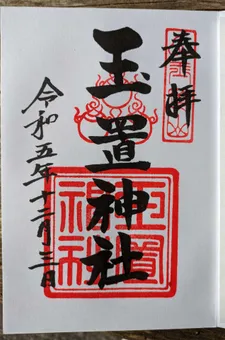 奉拝
玉置神社
令和五年十二月三日
玉置
神社